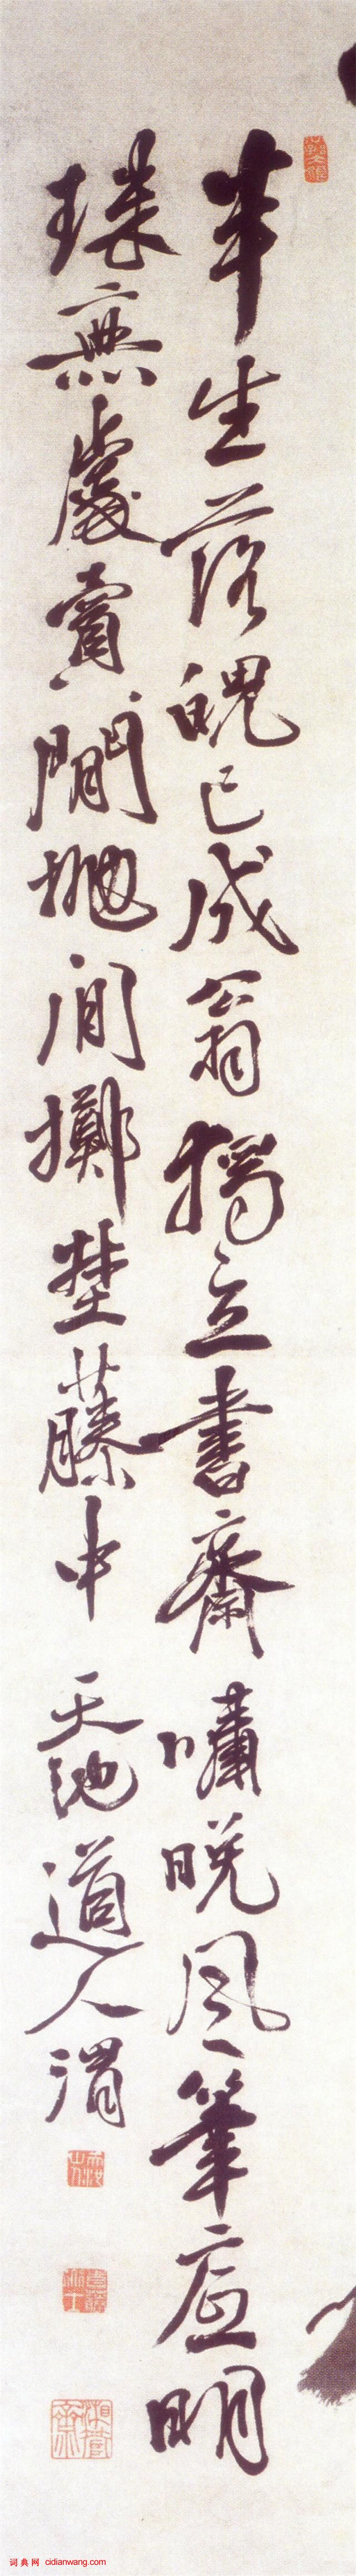 半生落魄已成翁獨立書齋嘯晚風筆底明
珠無處賣閒拋閒擲埜藤中 天池道人渭
词典网 cidianwang.com